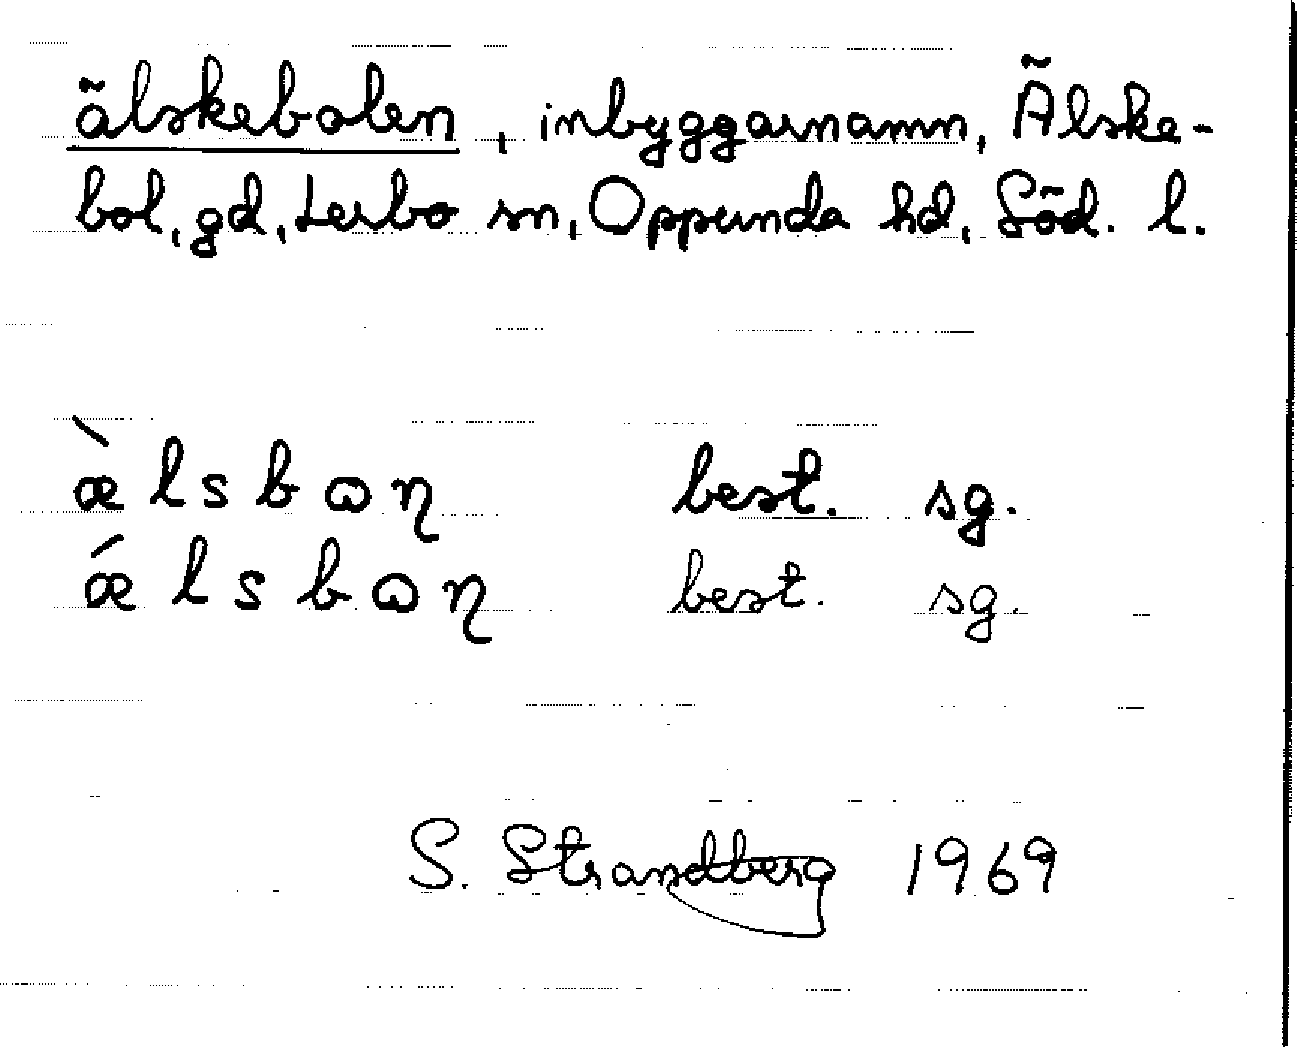 älskebolen, inbyggarnamn, Älske-
bol, gd, Lerbo sn, Oppunda hd, Söd. l.
æ̀ l s b ɷ η best. sg.
ǽ l s b ɷ η best. sg.
S. Strandberg 1969